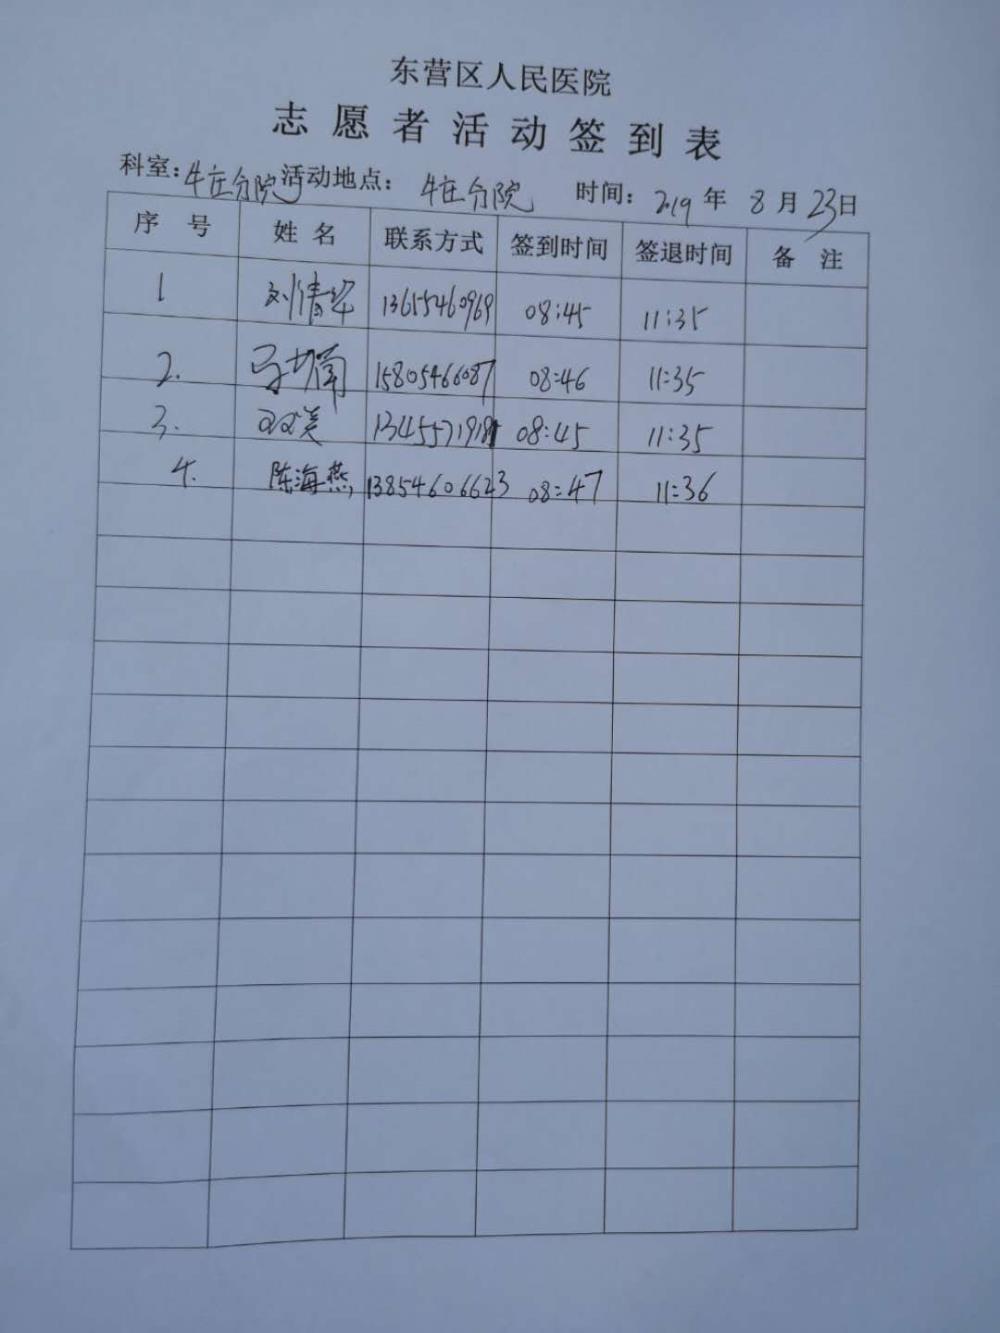 东营区人民医院
志愿者活动签到表
科室:牛庄分院 活动地点: 牛庄分院 时间: 2019年 8月23日
序号 姓名 联系方式 签到时间 签退时间 备注
1 刘倩华 13655460969 08:45 11:35
2. 15805466087 08:46 11:35
3. 08:45 11:35
4. 陈海燕 13854606623 08:47 11:36